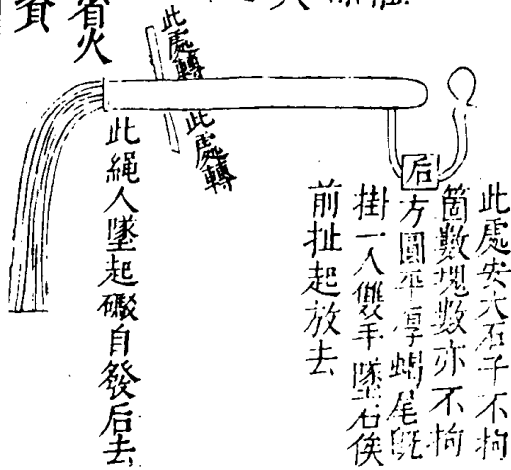 此處安大石子不拘
箇數塊數亦不拘
方圓平厚蝎尾旣
掛一人雙手墜石俟
前扯起放去
后
此處轉
此處轉
此繩人墜起礮自發后去
省火